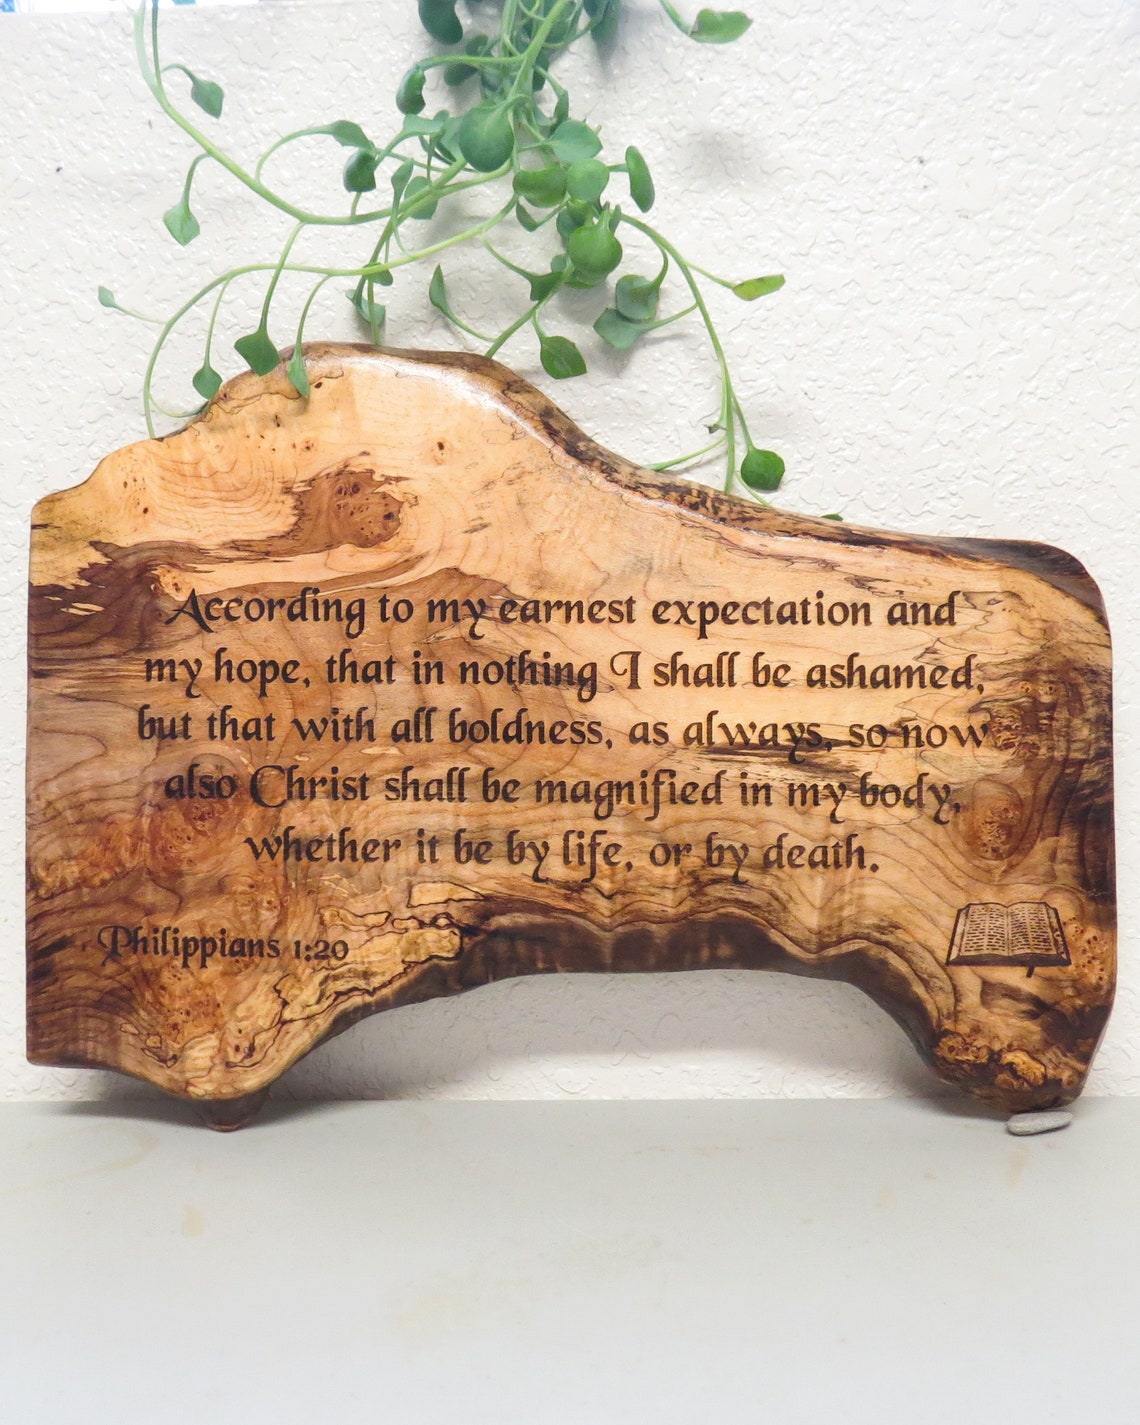 According to my earnest expectation and
my hope, that in nothing I shall be ashamed,
but that with all boldness, as always, so now
also Christ shall be magnified in my body,
whether it be by life, or by death.
Philippians 1:20